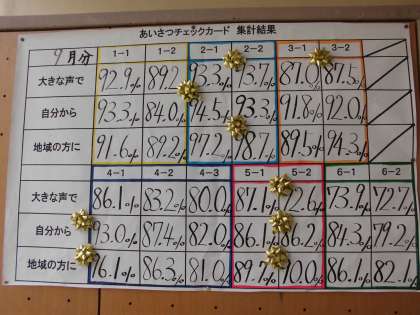 あいさつチェックカード 集計結果
9月分 1-1 1-2 2-1 2-2 3-1 3-2
大きな声で 92.9% 89.2 93.3% 93.7% 87.0% 87.5%
自分から 93.3% 84.0% 94.5% 93.3% 91.8% 92.0%
地域の方に 91.6% 89.2% 97.2% 78.7% 89.5% 94.3%
4-1 4-2 4-3 5-1 5-2 6-1 6-2
大きな声で 86.1% 83.2% 80.0% 87.1% 72.6% 73.9% 72.7%
自分から 93.0% 87.4% 82.0% 86.1% 86.2% 84.3% 79.2%
地域の方に 76.1% 86.3% 81.0% 89.7% 90.0% 86.1% 82.1%